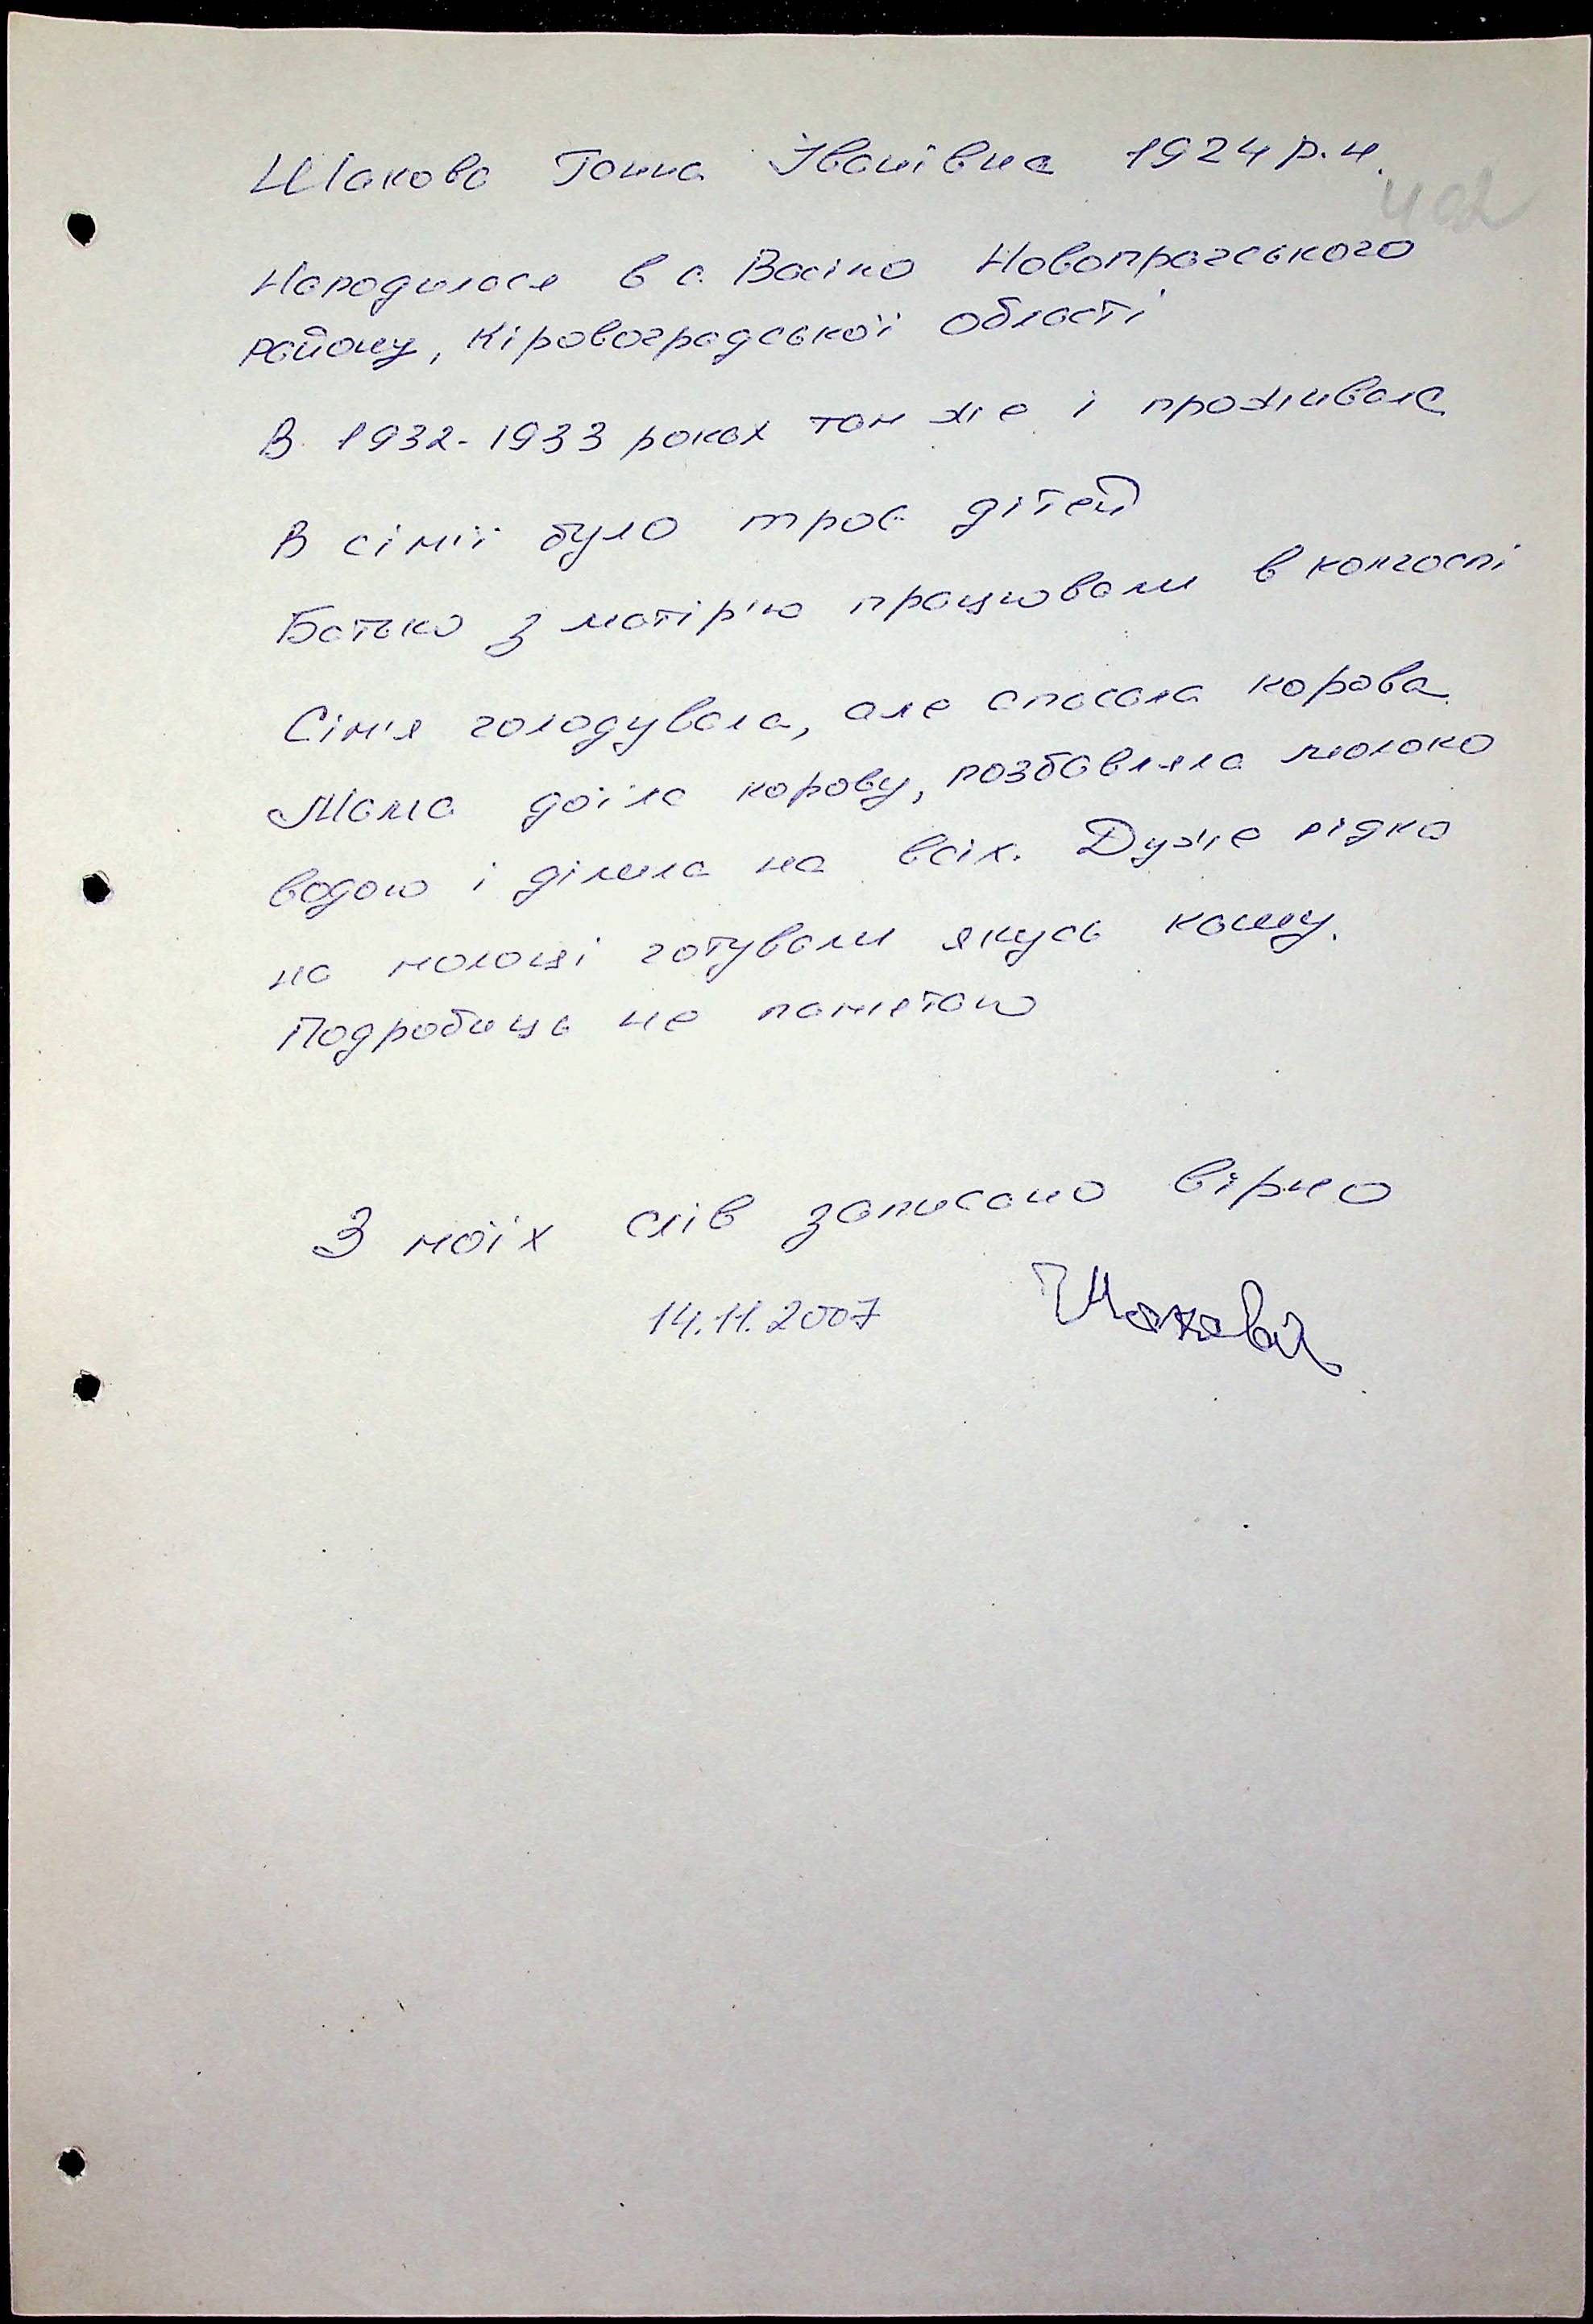 Шакова Ганна Іванівна 1924 р.н.
402
Народилася в с. Васіно Новопразського
району, Кіровоградської області
В 1932-1933 роках там же і проживала
В сім'ї було троє дітей
Батько з матір'ю працювали в колгоспі
Сім'я голодувала, але спасала корова.
Мама доїла корову, розбавляла молоко
водою і ділила на всіх. Дуже рідко
на молоці готували якусь кашу.
Подробиць не памятаю
З моїх слів записано вірно
14.11.2007 Шакова